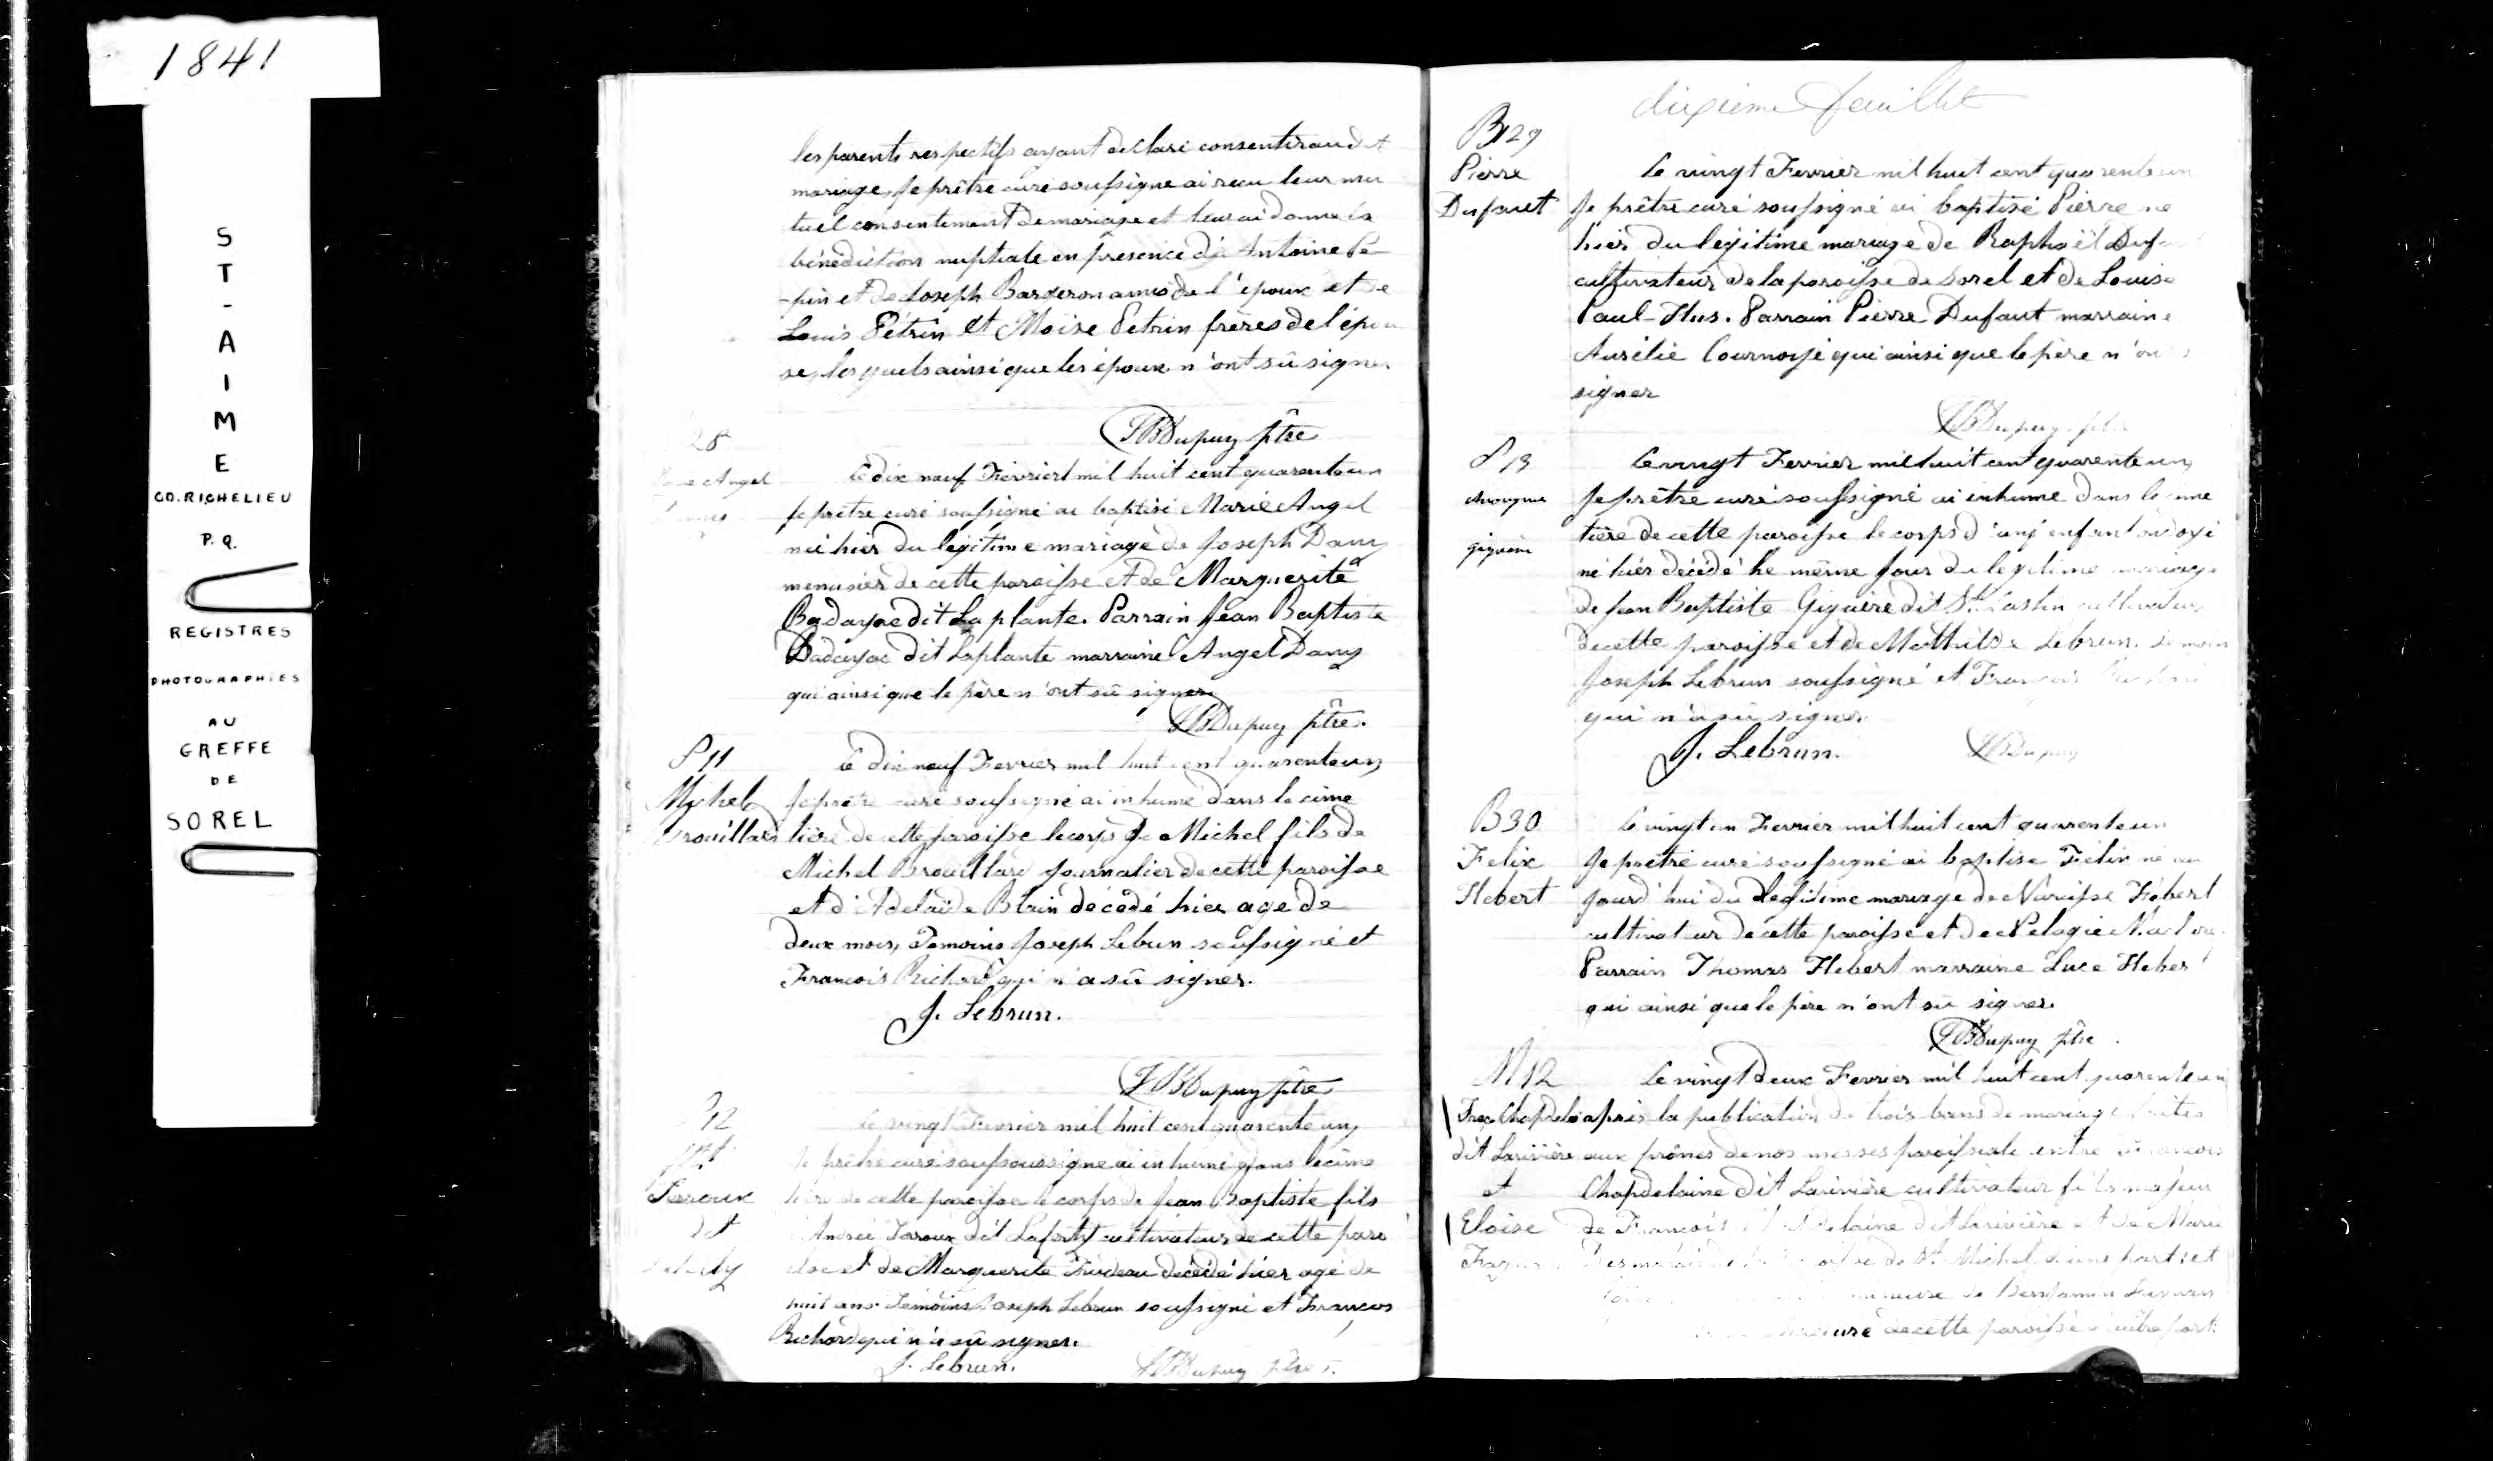 1841
ST-AIME
CO. RICHELIEU
P.Q.
REGISTRES
PHOTOGRAPHIES
AU
GREFFE
DE
SOREL
les parents respectifs ayant declaré consentir audit
mariage, Je prêtre curé soussigné ai reçu leur mu
tuel consentement de mariage et leur ai donné la
bénédiction nuptiale en présence d'Antoine Pé
-pin et de Joseph Barderon amis de l'époux et de
Louis Pétrin et Moise Petrin frères de l'épou
se, lesquels ainsi que les époux n'ont sû signer
JBDupuy ptre
28
Angel
Le dix neuf Fevrier mil huit cent quarante un
Je prêtre curé soussigné ai baptisé Marie Angel
née hier du légitime mariage de Joseph Dany
menusier de cette paroisse et de Marguerite
Badayac dit Laplante. Parrain Jean Baptiste
Badayac dit Laplante marraine Angel Dany
qui ainsi que le père n'ont sû signer
JBDupuy ptre.
S 11
Michel
Brouillard
Le dix neuf Fevrier mil huit cent quarante un
Je prêtre curé soussigné ai inhumé dans le cime
tière de cette paroisse le corps de Michel fils de
Michel Brouillard journalier de cette paroisse
et d'Adelaïde Blain décédé hier agé de
deux mois, Temoins Joseph Lebrun soussigné et
François Richard qui n'a sû signer.
J. Lebrun.
JBDupuy ptre
12
Jaroux
dit
Le vingt Fevrier mil huit cent quarante un
Je prêtre curé soussoussigné ai inhumé dans le cime
tière de cette paroisse le corps de Jean Baptiste fils
André Jaroux dit cultivateur de cette paro
isse et de Marguerite décédé hier agé de
huit ans. Témoins Joseph Lebrun soussigné et François
Richard qui n'a sû signer.
J. Lebrun.
JBDupuy ptre
dixieme feuillet
B 29
Pierre
Dufaut
Le vingt Fevrier mil huit cent quarante un
Je prêtre curé soussigné ai baptisé Pierre né
hier du légitime mariage de Raphaël
cultivateur de la paroisse de Sorel et de Louise
Paul-Hus. Parrain Pierre Dufaut marraine
Aurélie Cournoyé qui ainsi que le père n'on
signer
JBDupuy
S 13
Anonyme
Giguère
Le vingt Fevrier mil huit cent quarante un,
Je prêtre curé soussigné ai inhumé dans le cime
tière de cette paroisse le corps d'un enfant ondoyé
né hier décédé le même jour du légitime mariage
de Jean Baptiste Giguère dit cultivateur
de cette paroisse et de Mathilde Lebrun.
Joseph Lebrun soussigné et François
qui n'a sû signer.
J. Lebrun.
JBDupuy
B 30
Felix
Hebert
Le vingt un Fevrier mil huit cent quarante un
Je prêtre curé soussigné ai baptisé Félix né au
jourd'hui du légitime mariage de Narcisse Hébert
cultivateur de cette paroisse et de Pelagie
Parrain Thomas Hebert marraine Luce Heber
qui ainsi que le père n'ont sû signer.
JBDupuy ptre
M 12
Chapdelai
dit Larivière
et
Eloise
Le vingt deux Fevrier mil huit cent quarante un
après la publication de trois bans de mariage faites
aux prônes de nos messes paroissiale entre François
Chapdelaine dit Larivière cultivateur fils majeur
de François Chapdelaine dit Larivière et de Marie
de St. Michel d'une part, et
mineure de Benjamin
de cette paroisse d'autre part.